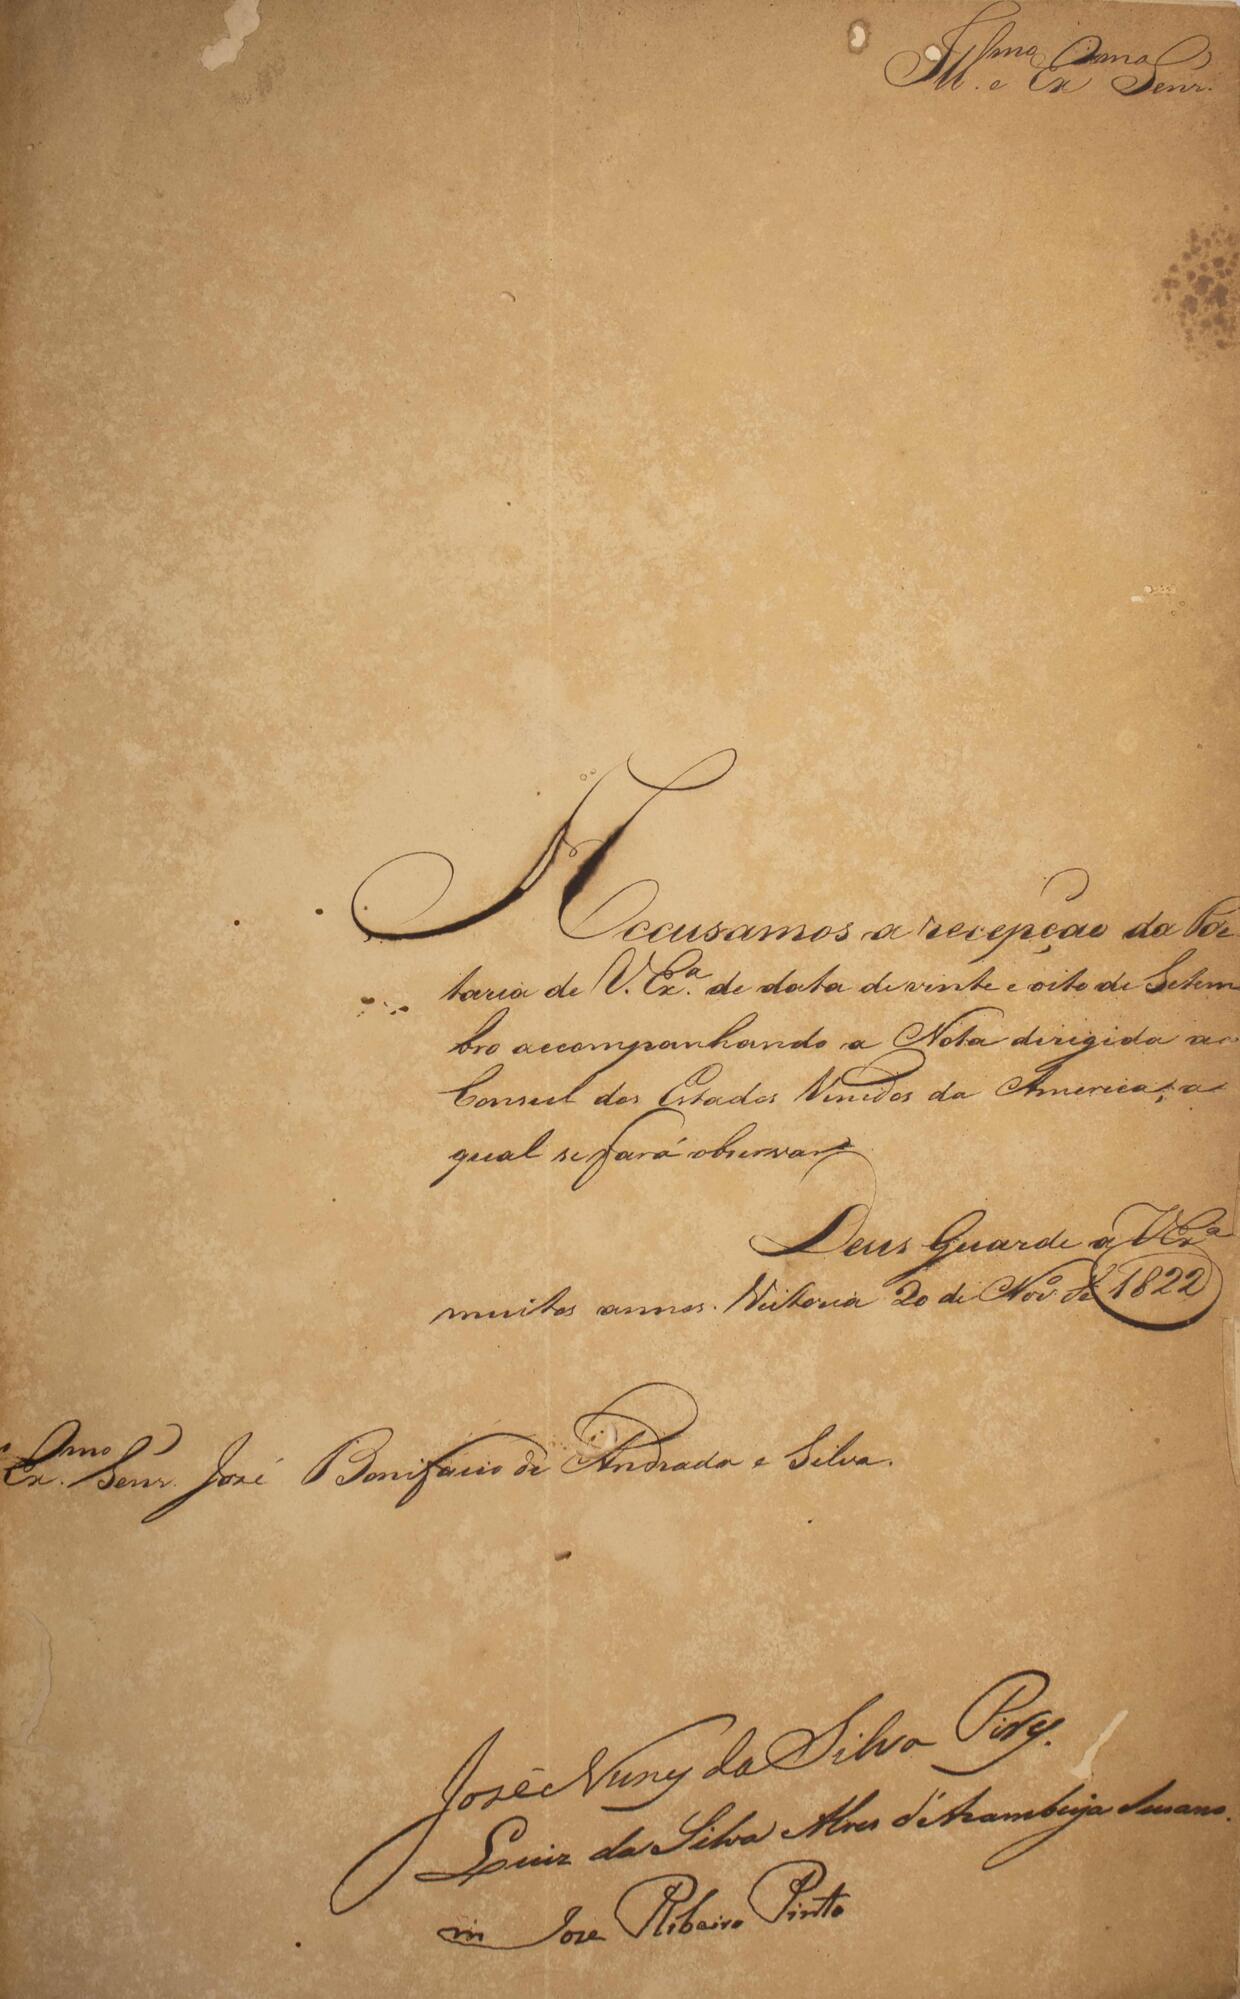 Ill.mo e Ex.mo Senr.
Accusamos a recepção da Por-
taria de V. Ex.ª de data de vinte e oito de Setem
bro accompanhando a Nota dirigida ao
Consul dos Estados Unidos da America, a
qual se fará observar.
Deus Guarde a V Ex.ª
muitos annos. Victoria 20 de Nov.º de 1822
Ex.mo Senr. José Bonifacio de Andrada e Silva.
José Nunes da Silva Pires.
Luiz da Silva Alves d'Azambuja Susano.
José Ribeiro Pinto